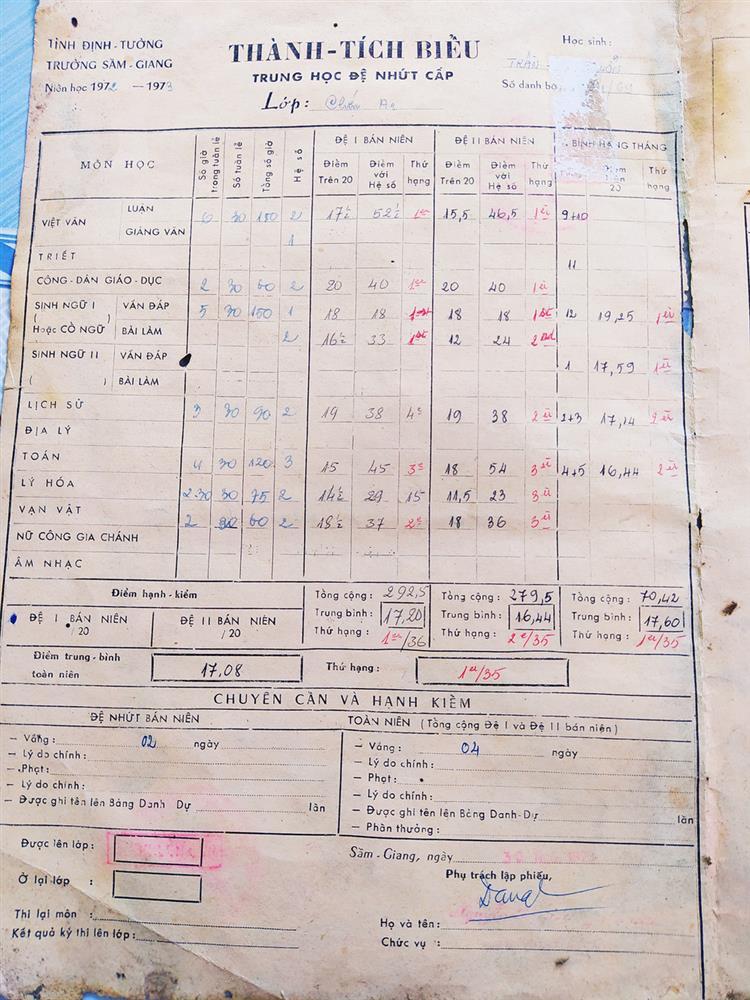 TỈNH ĐỊNH-TƯỜNG
TRƯỜNG SẦM-GIANG
Niên học 1972 — 1973
THÀNH-TÍCH BIỂU
TRUNG HỌC ĐỆ NHỨT CẤP
Lớp:
Học sinh: TRẦN
Số danh bộ
MÔN HỌC Số giờ trong tuần lễ Số tuần lễ Tổng số giờ Hệ số ĐỆ I BÁN NIÊN ĐỆ II BÁN NIÊN BÌNH HẠNG THÁNG
Điểm Trên 20 Điểm với Hệ số Thứ hạng Điểm Trên 20 Điểm với Hệ số Thứ hạng Điểm trên 20 Thứ hạng
VIỆT VĂN LUẬN 6 30 2 17½ 52½ 1er 15,5 46,5 1er 9+10
GIẢNG VĂN 1
TRIẾT 11
CÔNG-DÂN GIÁO-DỤC 2 30 60 2 20 40 1er 20 40 1er
SINH NGỮ I ( ) VẤN ĐÁP 5 30 150 1 18 18 1st 18 18 1st 12 19,25 1er
Hoặc CỔ NGỮ BÀI LÀM 2 16½ 33 1st 12 24 2nd
SINH NGỮ II VẤN ĐÁP 1 17,59 1er
( ) BÀI LÀM
LỊCH SỬ 3 30 90 2 19 38 4e 19 38 2+3 17,14
ĐỊA LÝ
TOÁN 4 30 120 3 15 45 3e 18 54 4+5 16,44
LÝ HÓA 2.30 30 75 2 14½ 29 15 11,5 23
VẠN VẬT 2 30 60 2 18½ 37 2e 18 36
NỮ CÔNG GIA CHÁNH
ÂM NHẠC
Điểm hạnh-kiểm Tổng cộng: 292,5 Tổng cộng: 279,5 Tổng cộng: 70,42
ĐỆ I BÁN NIÊN /20 ĐỆ II BÁN NIÊN /20 Trung bình: 17,20 Trung bình: 16,44 Trung bình: 17,60
Thứ hạng: 1er/36 Thứ hạng: 2e/35 Thứ hạng: 1er/35
Điểm trung-bình toàn niên 17,08 Thứ hạng: 1er/35
CHUYÊN CẦN VÀ HẠNH KIỂM
ĐỆ NHỨT BÁN NIÊN
— Vắng: 02 ngày
— Lý do chính:
— Phạt:
— Lý do chính:
— Được ghi tên lên Bảng Danh Dự lần
TOÀN NIÊN (Tổng cộng Đệ I và Đệ II bán niên)
— Vắng: 04 ngày
— Lý do chính:
— Phạt:
— Lý do chính:
— Được ghi tên lên Bảng Danh-Dự lần
— Phần thưởng:
Được lên lớp:
Ở lại lớp :
Thi lại môn :
Kết quả kỳ thi lên lớp:
Sầm-Giang, ngày
Phụ trách lập phiếu,
Họ và tên:
Chức vụ :